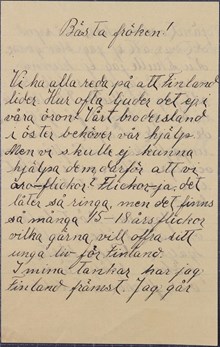 Bästa fröken!
Vi ha alla reda på att Finland
lider. Hur ofta ljuder det ej i
våra öron! Vårt broderland
i öster behöver vår hjälp.
Men vi skulle ej kunna
hjälpa dem därför att vi
äro flickor? Flickor ja, det
låter så ringa, men det finns
så många 15-18 års flickor
vilka gärna vill offra sitt
unga liv för Finland.
I mina tankar har jag
Finland främst. Jag går